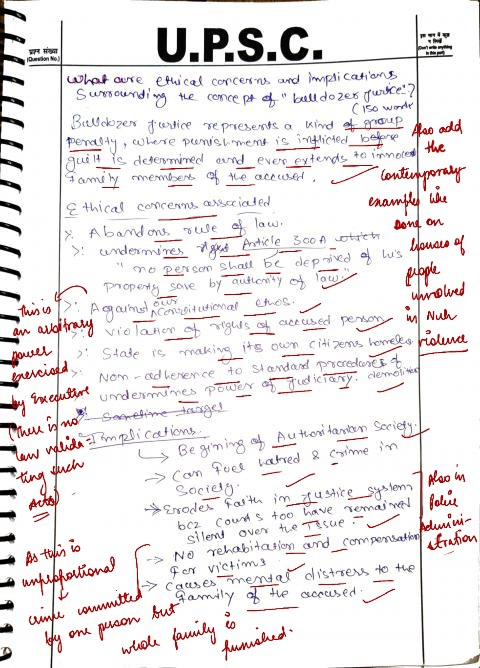 प्रश्न संख्या
(Question No.)
U.P.S.C.
इस भाग में कुछ
न लिखें
(Don't write anything
in this part)
What are ethical concerns and implications
Surrounding the concept of "bulldozer justice"?
(150 words
Bulldozer justice represents a kind of group
penalty, where punishment is inflicted before
guilt is determined and even extends to innocent
family members of the accused.
Also add
the
contemporary
example like
done on
houses of
people
involved
in Nuh
violence
Ethical concerns associated
>. Abandons rule of law.
>: undermines Article 300A which
"no person shall be deprived of his
property save by authority of law."
>: Against our Constitutional ethos.
>: Violation of rights of accused person
>: State is making its own citizens homeless
>: Non-adherence to standard procedures of
demolition
undermines power of judiciary.
Sometime target
This is
an arbitrary
power
exercised
by Executive
(There is no
law valida-
ting such
Acts)
Implications
→ Begining of Authoritarian Society.
→ Can fuel hatred & crime in
Society.
→ Erodes Faith in justice system
bcz courts too have remained
silent over the issue.
→ No rehabitation and compensation
for victims
→ causes mental distress to the
family of the accused.
Also in
Police
Adminis-
tration
As this is
unproportional
crime committed
by one person but
whole family is
punished.